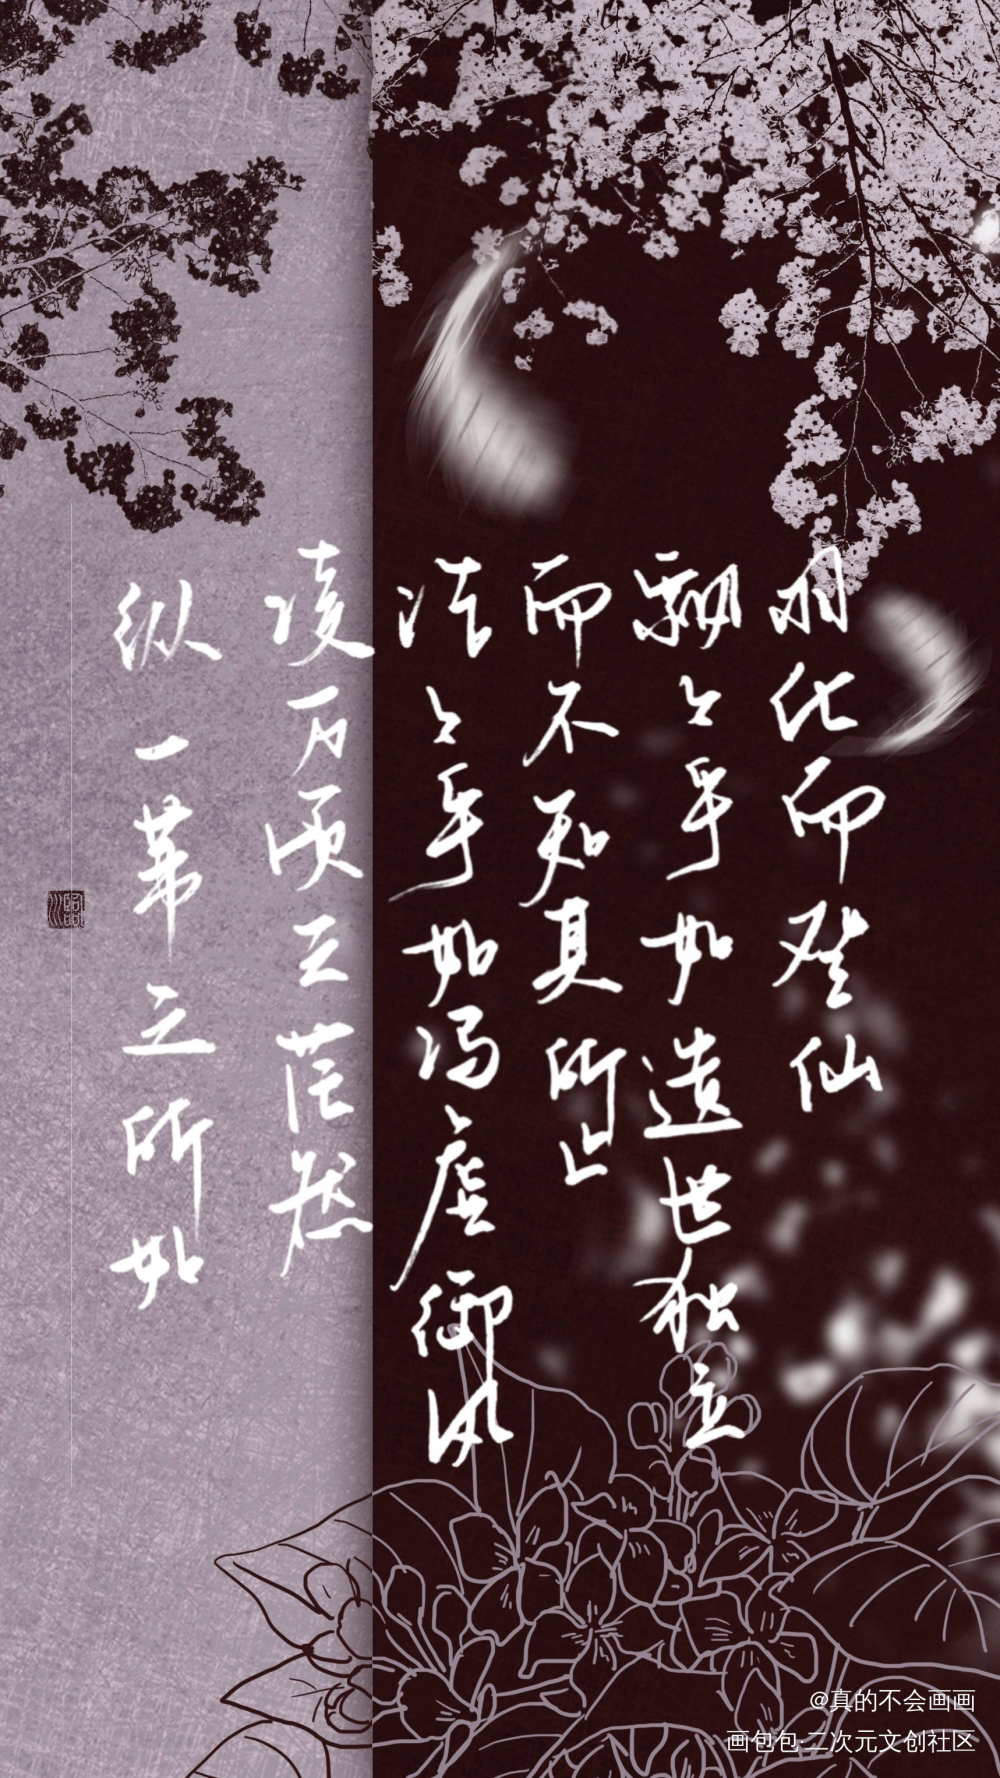 纵一苇之所如
凌万顷之茫然
浩々乎如冯虚御风
而不知其所止
飘々乎如遗世独立
羽化而登仙
@真的不会画画
画包包·二次元文创社区